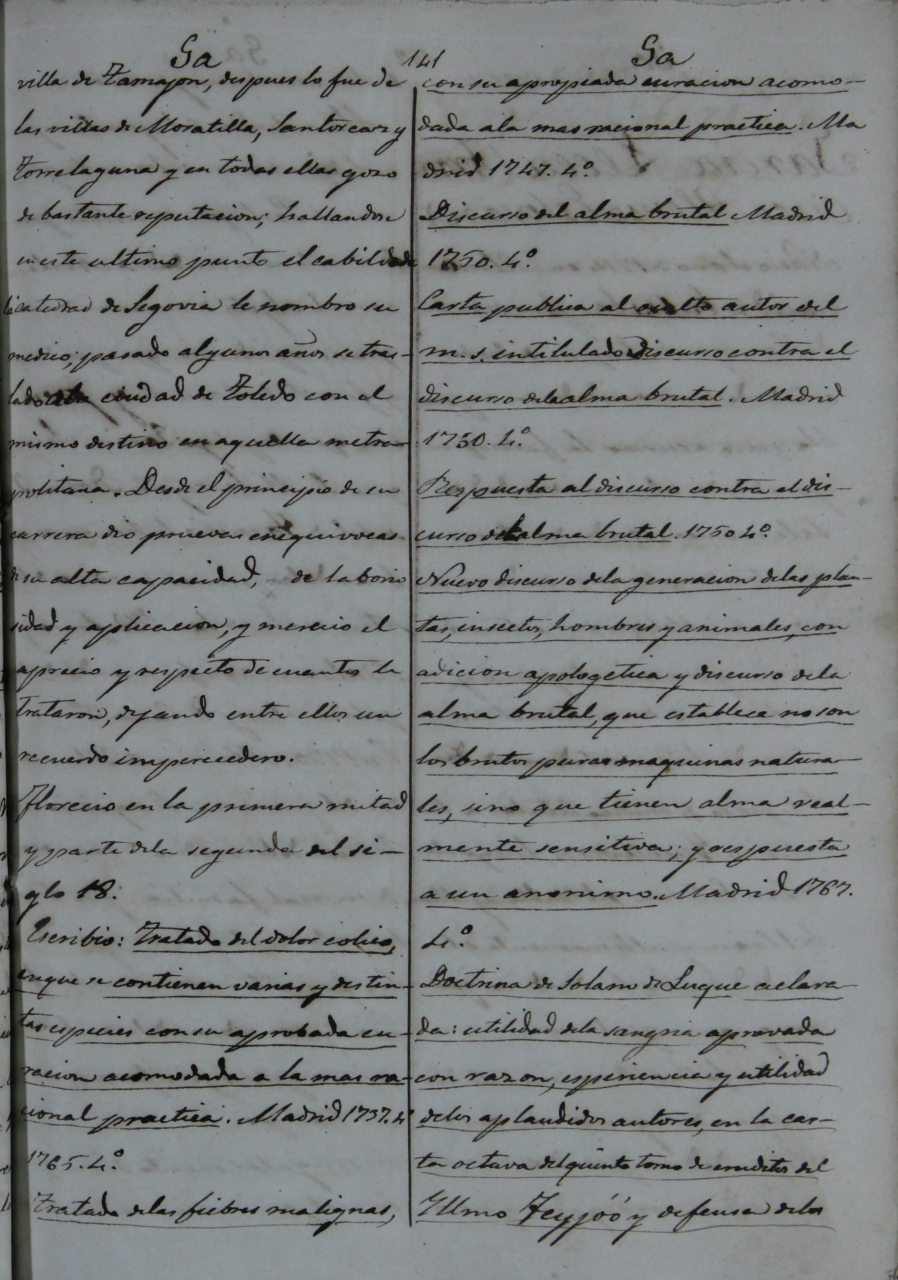 Ga
141
Ga
villa de Tamajon, despues lo fue de
las villas de Moratilla, Santorcaz y
Torrelaguna y en todas ellas gozo
de bastante reputacion; hallandose
en este ultimo punto el cabildo de
la catedral de Segovia le nombro su
medico; pasado algunos años se tras-
lado a la ciudad de Toledo con el
mismo destino en aquella metro-
politana. Desde el principio de su
carrera dio pruevas enequivocas
de su alta capacidad, de laborio
sidad y aplicacion, y merecio el
aprecio y respecto de cuantos le
trataron, dejando entre ellos un
recuerdo imperecedero.
Florecio en la primera mitad
y parte dela segunda del si-
glo 18.
Escribio: Tratado del dolor colico,
enque se contienen varias y distin-
tas especies con su aprobada cu-
racion acomodada a la mas ra-
cional practica. Madrid 1737. 4º
1765. 4.º
Tratado delas fiebres malignas,
con su apropiada curacion acomo-
dada a la mas racional practica. Ma
drid 1747. 4.º
Discurso del alma brutal Madrid
1750. 4.º
Carta publica al oculto autor del
m. s. intitulado Discurso contra el
discurso dela alma brutal. Madrid
1750. 4.º
Respuesta al discurso contra el dis-
curso del alma brutal. 1750 4.º
Nuevo discurso dela generacion delas plan-
tas, insectos, hombres y animales, con
adicion apologetica y discurso dela
alma brutal, que establece no son
los brutos puras maquinas natura-
les, sino que tienen alma real-
mente sensitiva; y respuesta
a un anonimo. Madrid 1767.
4.º
Doctrina de Solano de Luque aclara-
da: utilidad dela sangria aprovada
con razon, esperiencia y utilidad
delos aplaudidos autores, en la car-
ta octava del quinto tomo de eruditos del
Yllmo Feyjóó y defensa delos